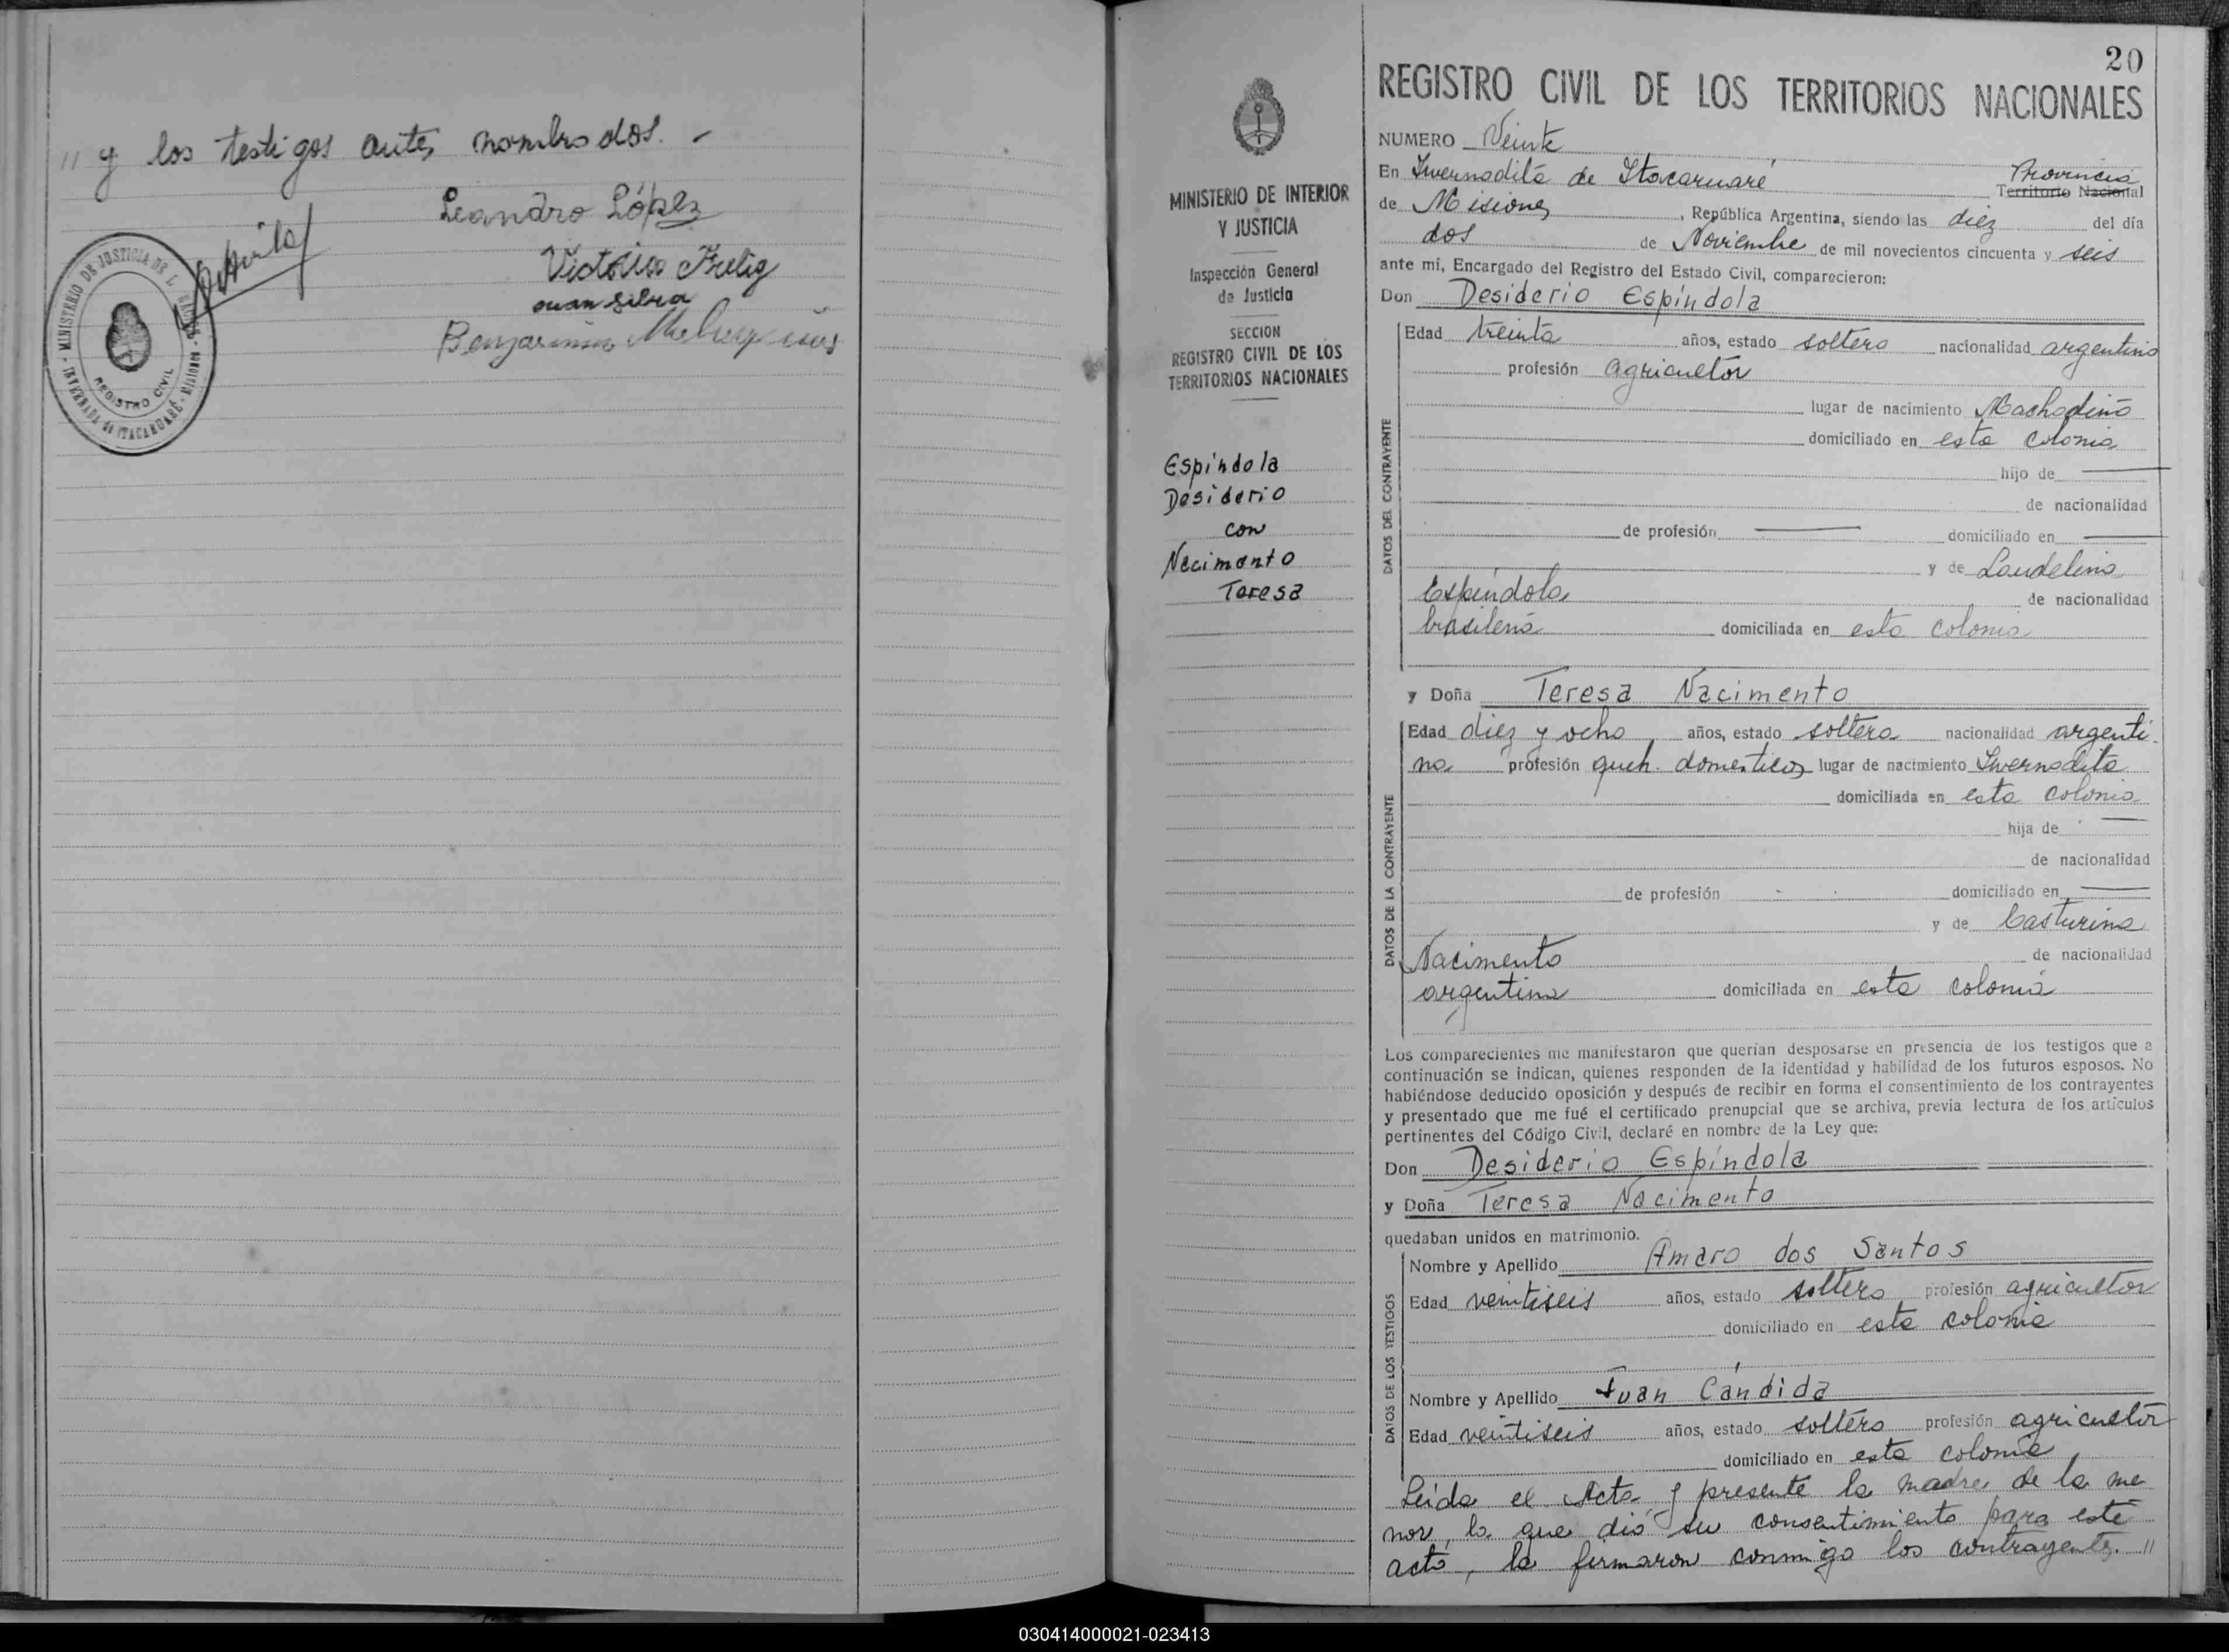 " y los testigos antes nombrados. -
Leandro López
Victorio Frelig
Juan Silva
Benjamin
MINISTERIO DE JUSTICIA DE L
REGISTRO CIVIL
INVERNADA de ITACARUARÉ - Misiones
20
REGISTRO CIVIL DE LOS TERRITORIOS NACIONALES
MINISTERIO DE INTERIOR
Y JUSTICIA
Inspección General
de Justicia
SECCION
REGISTRO CIVIL DE LOS
TERRITORIOS NACIONALES
Espíndola
Desiderio
con
Necimento
Teresa
NUMERO Veinte
En Invernadita de Itacaruaré Provincia Territorio Nacional
de Misiones, República Argentina, siendo las diez del día
dos de Noviembre de mil novecientos cincuenta y seis
ante mí, Encargado del Registro del Estado Civil, comparecieron:
Don Desiderio Espíndola
DATOS DEL CONTRAYENTE
Edad treinta años, estado soltero nacionalidad argentino
profesión agricultor
lugar de nacimiento Machadiño
domiciliado en esta colonia
hijo de
de nacionalidad
de profesión domiciliado en
y de Laudelina
Espíndola de nacionalidad
brasileña domiciliada en esta colonia
y Doña Teresa Nacimento
DATOS DE LA CONTRAYENTE
Edad diez y ocho años, estado soltera nacionalidad argenti-
na profesión queh. domesticos lugar de nacimiento Invernadita
domiciliada en esta colonia
hija de
de nacionalidad
de profesión domiciliado en
y de Casturina
Nacimento de nacionalidad
argentina domiciliada en esta colonia
Los comparecientes me manifestaron que querían desposarse en presencia de los testigos que a
continuación se indican, quienes responden de la identidad y habilidad de los futuros esposos. No
habiéndose deducido oposición y después de recibir en forma el consentimiento de los contrayentes
y presentado que me fué el certificado prenupcial que se archiva, previa lectura de los artículos
pertinentes del Código Civil, declaré en nombre de la Ley que:
Don Desiderio Espíndola
y Doña Teresa Nacimento
quedaban unidos en matrimonio.
DATOS DE LOS TESTIGOS
Nombre y Apellido Amaro dos Santos
Edad veintiseis años, estado soltero profesión agricultor
domiciliado en esta colonia
Nombre y Apellido Juan Cándida
Edad veintiseis años, estado soltero profesión agricultor
domiciliado en esta colonia
Leida el Acta y presente la madre de la me
nor, la que dió su consentimiento para este
acto, la firmaron conmigo los contrayentes. "
030414000021-023413